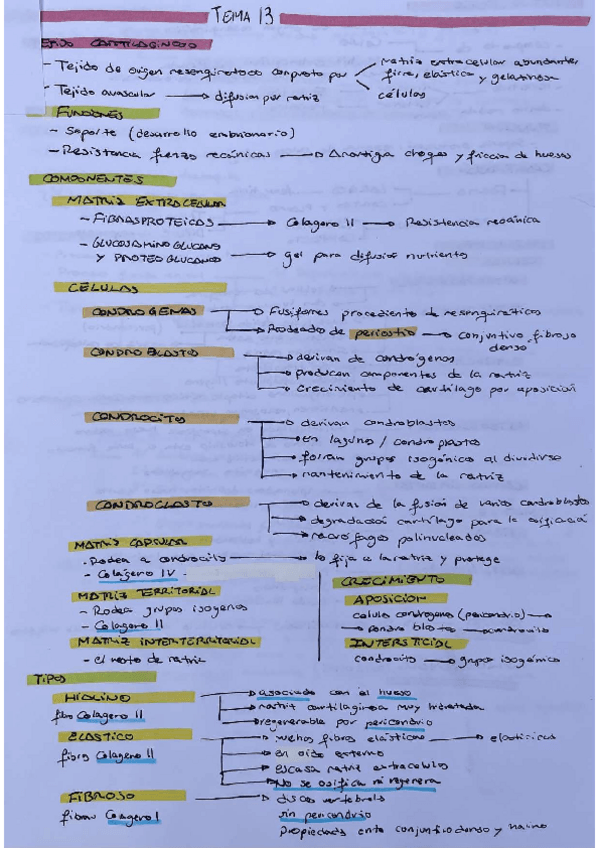 TEMA 13
TEJIDO CARTILAGINOSO
- Tejido de origen mesenquimatoso compuesto por → matriz extracelular abundante, firme, elástica y gelatinosa
→ células
- Tejido avascular → difusión por matriz
FUNCIONES
- Soporte (desarrollo embrionario)
- Resistencia fuerzas mecánicas → Amortigua choques y fricción de huesos
COMPONENTES
MATRIZ EXTRACELULAR
- FIBRAS PROTEICAS → Colageno II → Resistencia mecánica
- GLUCOSAMINOGLUCANOS Y PROTEOGLUCANOS → gel para difusión nutrientes
CÉLULAS
CONDROGENAS → Fusiformes procediente de mesenquimáticas
→ Rodeado de periostio → conjuntivo fibroso denso
CONDROBLASTO → derivan de condrógenos
→ producen componentes de la matriz
→ crecimiento de cartílago por aposición
CONDROCITO → derivan condroblastos
→ en lagunas / condroplastos
→ forman grupos isogónicos al dividirse
→ mantenimiento de la matriz
CONDROCLASTO → derivan de la fusión de varios condroblastos
→ degradación cartílago para la osificación
→ macrófagos polinucleados
MATRIZ CAPSULAR
- Rodea a condrocito → lo fija a la matriz y protege
- Colágeno IV
MATRIZ TERRITORIAL
- Rodea grupos isogenos
- Colageno II
MATRIZ INTERTERRITORIAL
- el resto de matriz
CRECIMIENTO
APOSICION
celula condrogena (pericondrio) →
→ condroblastos → condrocito
INTERSTICIAL
condrocito → grupo isogénico
TIPOS
HIALINO → asociado con el hueso
fibra Colageno II → matriz cartilaginosa muy hidratada
→ regenerable por pericondrio
ELASTICO → muchas fibras elásticas → elastina
fibras Colageno II → en oido externo
→ escasa matriz extracelular
→ No se osifica ni regenera
FIBROSO → discos vertebrales
fibras Colageno I sin pericondrio
propiedades entre conjuntivo denso y hialino